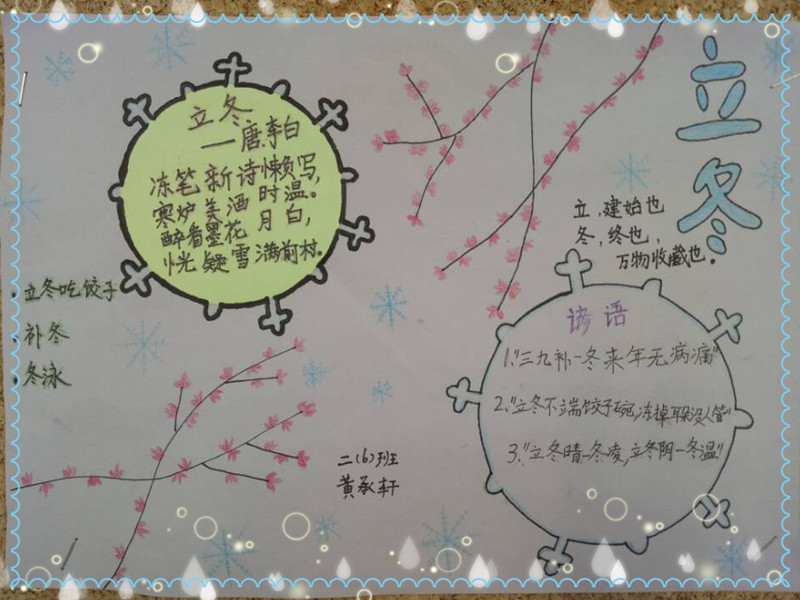 立冬
立冬
—唐.李白
冻笔新诗懒写，
寒炉美酒时温。
醉看墨花月白，
恍疑雪满前村.
立，建始也
冬，终也，
万物收藏也。
·立冬吃饺子
·补冬
·冬泳
谚语
1."三九补一冬来年无病痛"
2."立冬不端饺子碗，冻掉耳朵没人管"
3."立冬晴一冬凌，立冬阴一冬温"
二(6)班
黄承轩